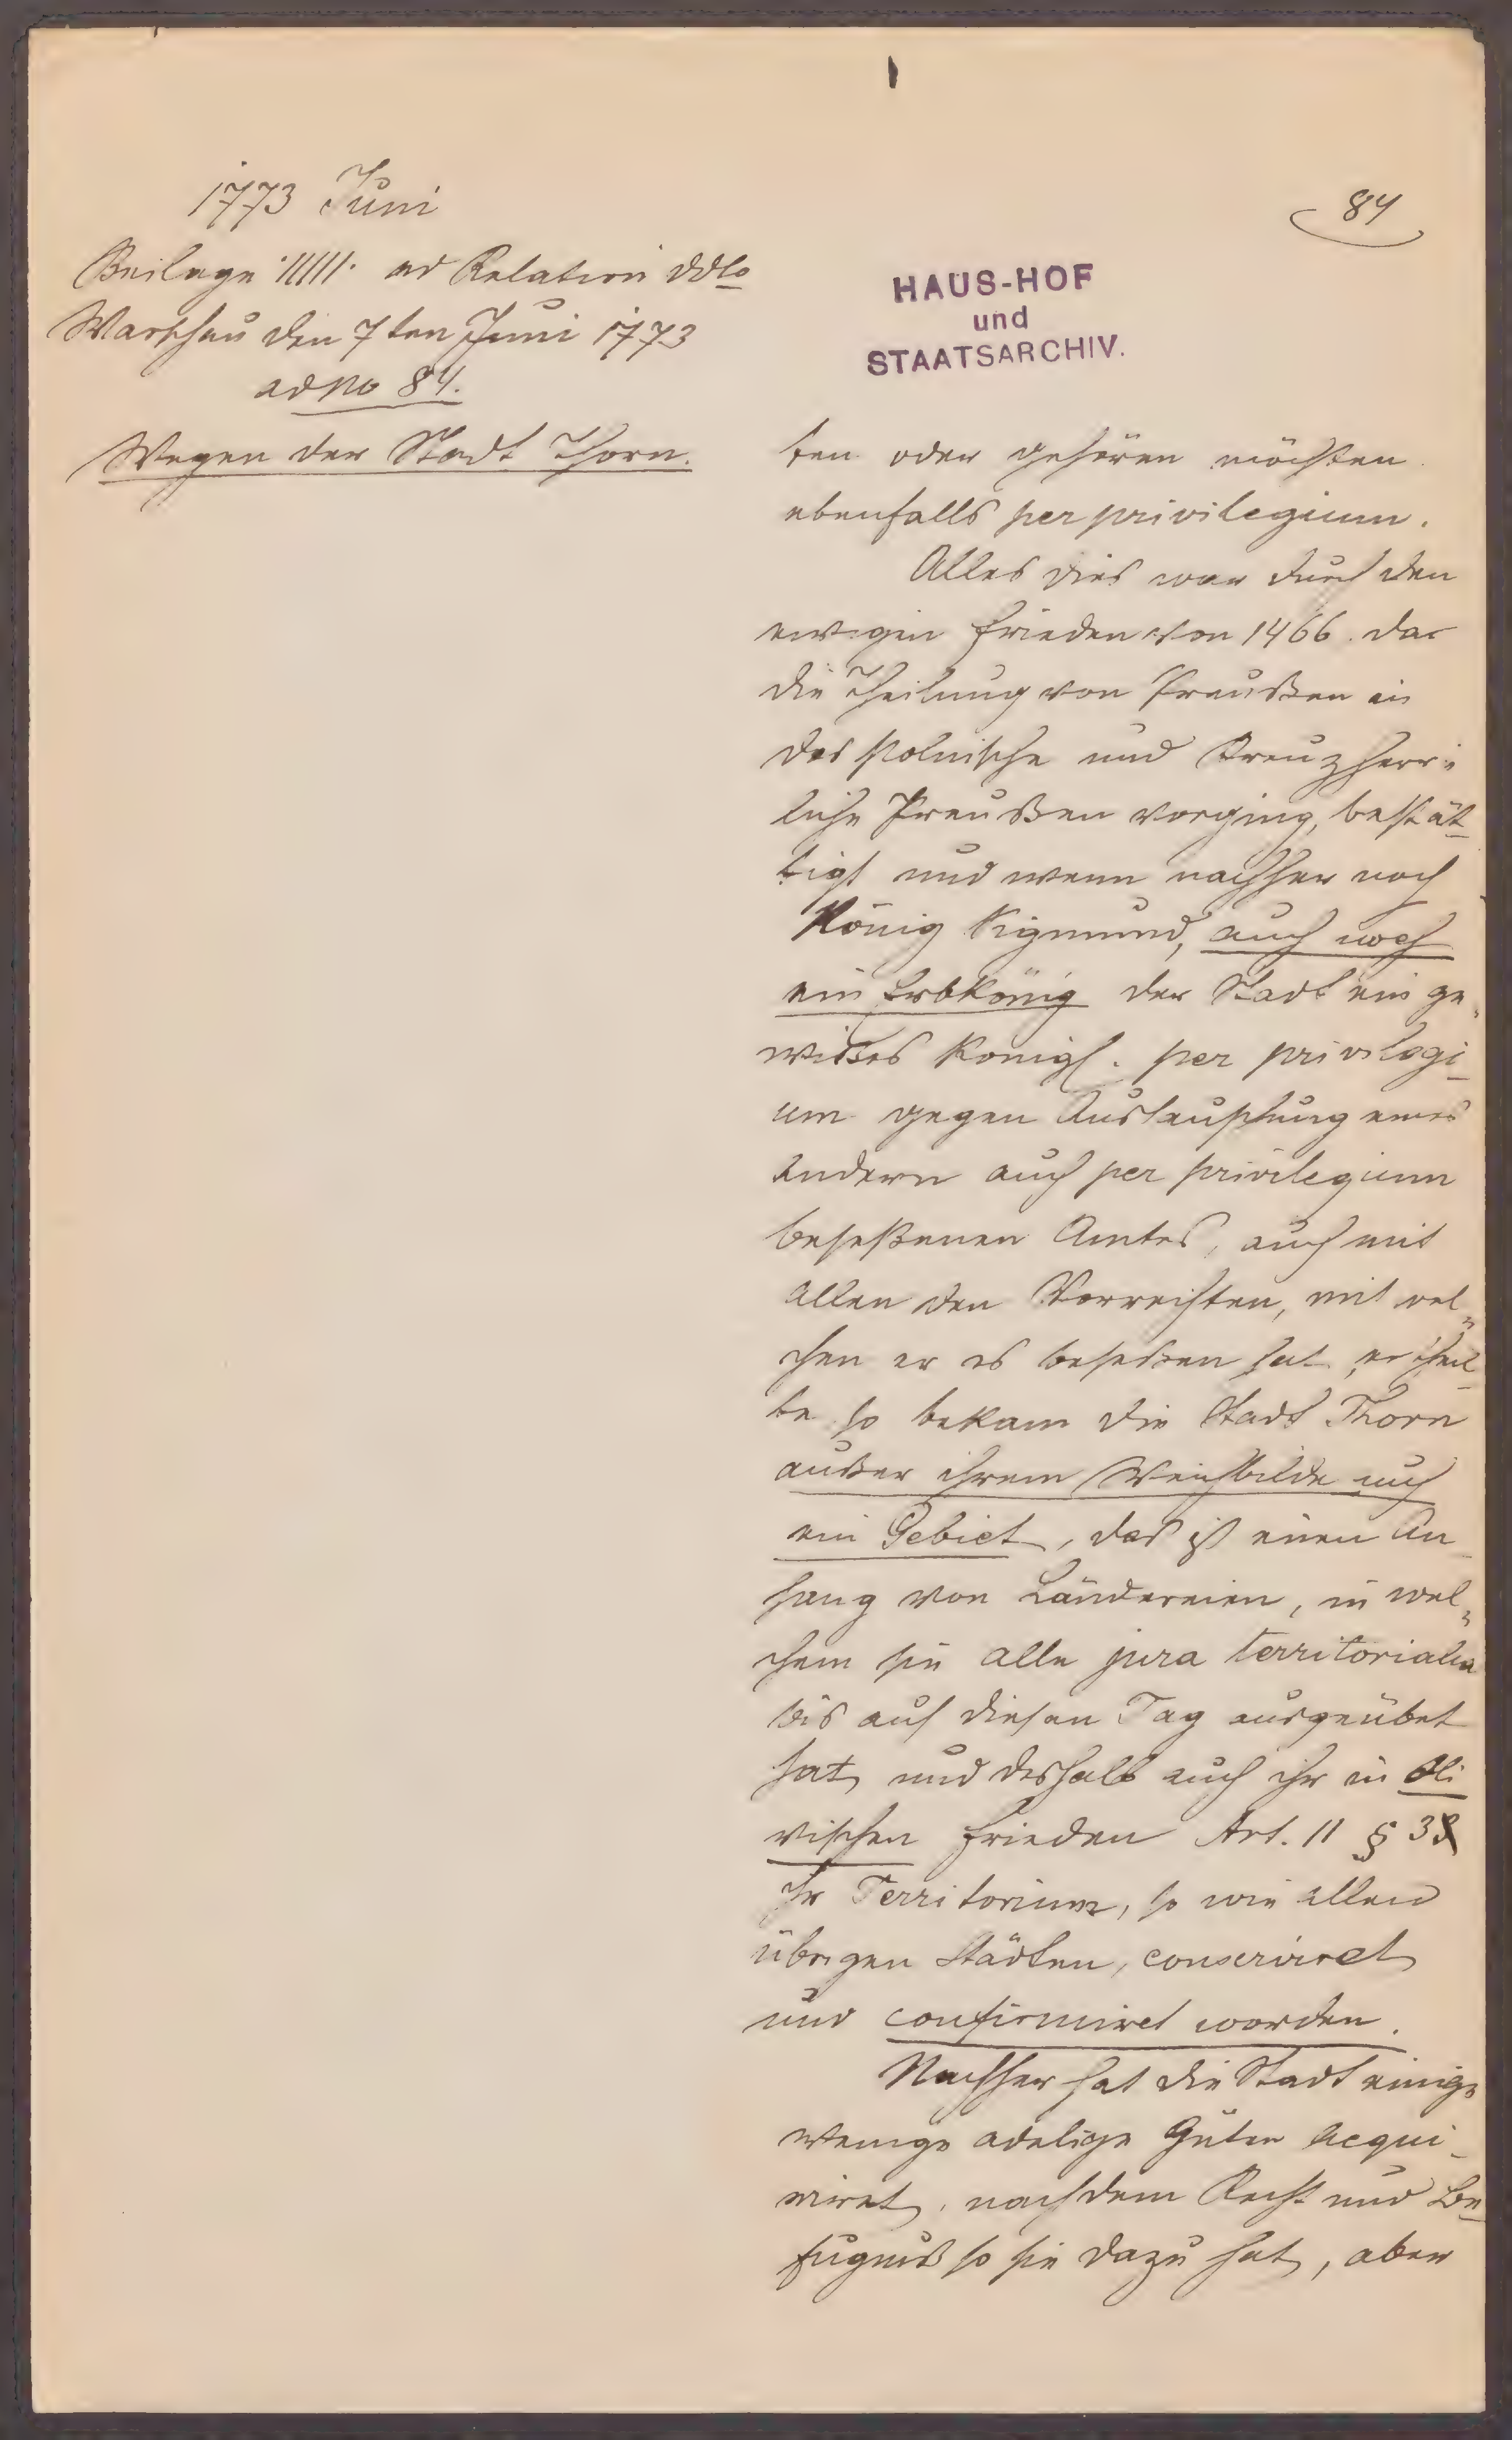 1773 Juni
Beilage ·/////· ad Relation ddto
Warschau den 7ten Juni 1773
ad No 84.
Wegen der Stadt Thorn.
84
HAUS-HOF
und
STAATSARCHIV.
ten oder gehören möchten
ebenfalls per privilegium.
Alles dies war durch den
ewigen Frieden von 1466. da
die Theilung von Preußen in
das Polnische und Kreuzherr-
liche Preußen vorging, bestät-
tigt und wenn nachher noch
König Sigmund, auch noch
ein Erbkönig der Stadt ein ge-
wißes Königl. per privilegi-
um gegen Austauschung eines
andern auch per privilegium
beseßenen Amtes, auch mit
allen den Vorrechten, mit wel-
chen er es beseßen hat, ertheil-
te so bekam die Stadt Thorn
außer ihrem Weichbilde auch
ein Gebiet, das ist einen An-
hang von Ländereien, in wel-
chem sie alle jura territorialia
bis auf diesen Tag ausgeübet
hat, und deshalb auch ihr in Oli-
vischen Frieden Art. 11 § 3
ihr Territorium, so wie allen
übrigen Städten, conserviret
und confirmiret worden.
Nachher hat die Stadt einige
wenige adelige Güter acqui-
riret, nach dem Recht und Be-
fugniß so sie dazu hat, aber